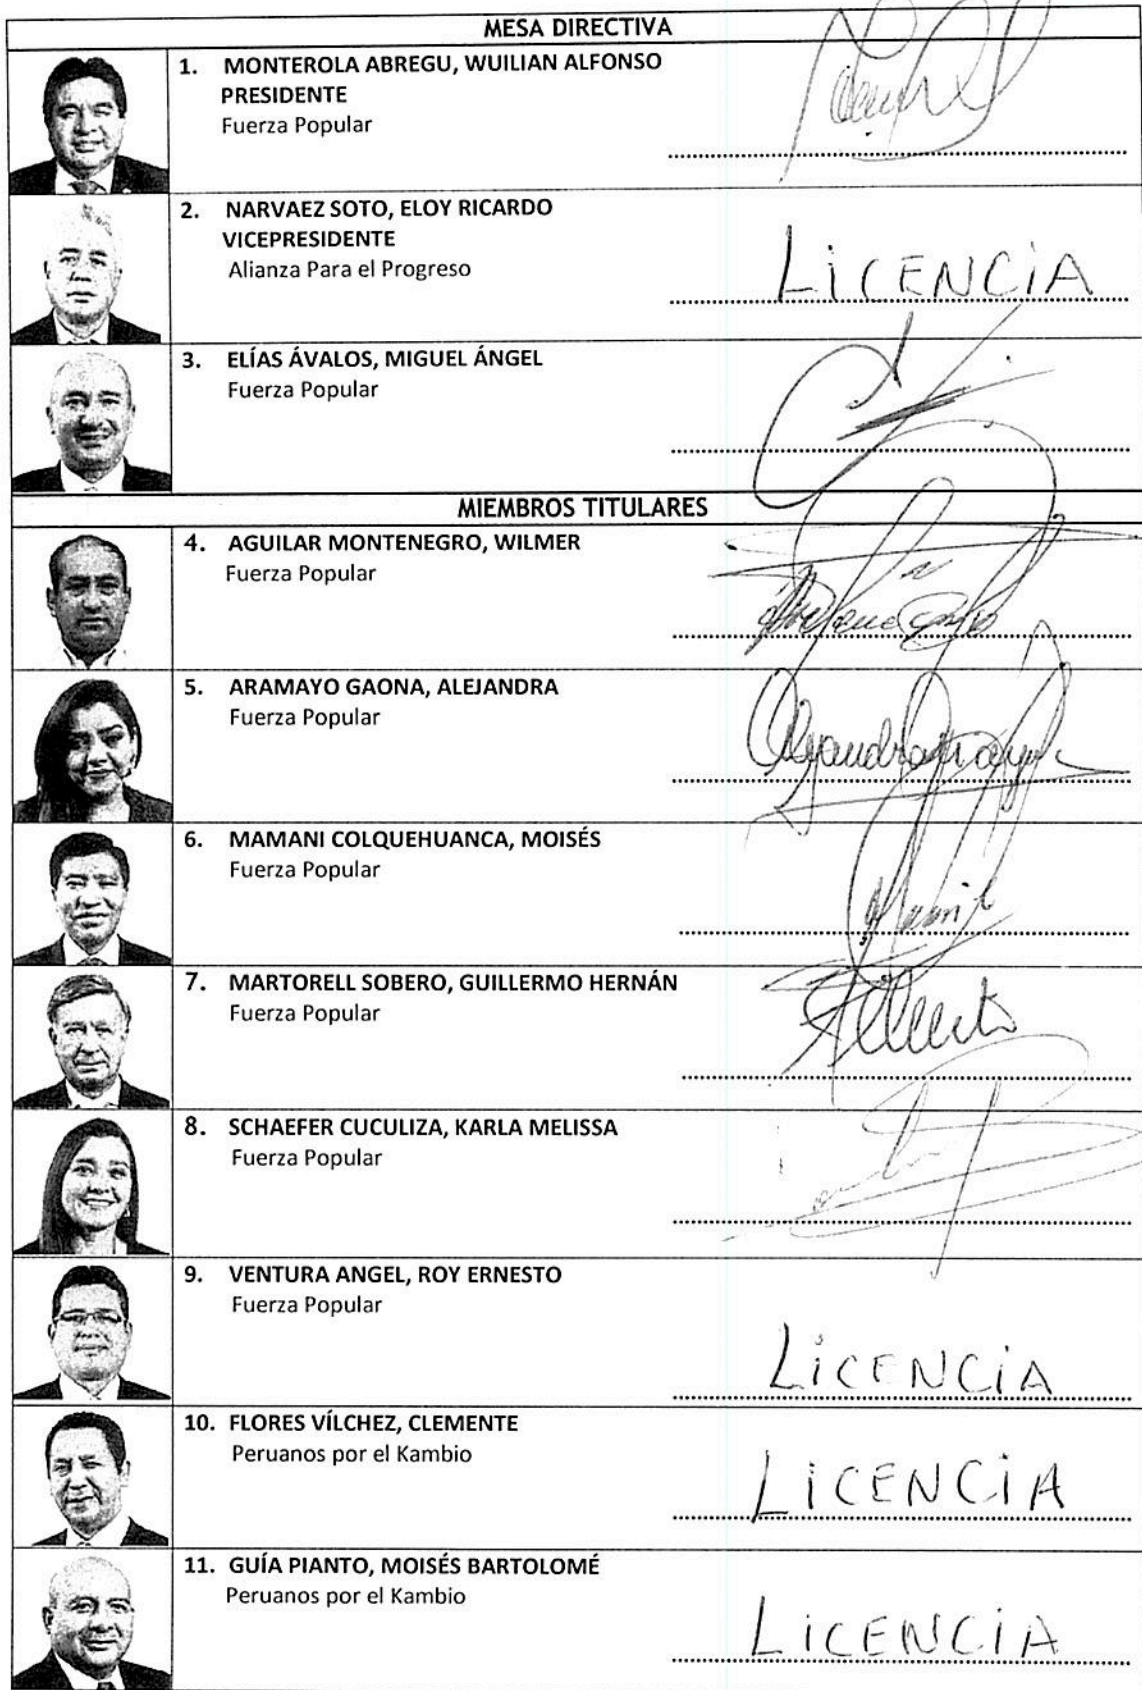 MESA DIRECTIVA
1. MONTEROLA ABREGU, WUILIAN ALFONSO
PRESIDENTE
Fuerza Popular
2. NARVAEZ SOTO, ELOY RICARDO
VICEPRESIDENTE
Alianza Para el Progreso
LiCENCiA
3. ELÍAS ÁVALOS, MIGUEL ÁNGEL
Fuerza Popular
MIEMBROS TITULARES
4. AGUILAR MONTENEGRO, WILMER
Fuerza Popular
5. ARAMAYO GAONA, ALEJANDRA
Fuerza Popular
6. MAMANI COLQUEHUANCA, MOISÉS
Fuerza Popular
7. MARTORELL SOBERO, GUILLERMO HERNÁN
Fuerza Popular
8. SCHAEFER CUCULIZA, KARLA MELISSA
Fuerza Popular
9. VENTURA ANGEL, ROY ERNESTO
Fuerza Popular
LiCENCiA
10. FLORES VÍLCHEZ, CLEMENTE
Peruanos por el Kambio
LiCENCiA
11. GUÍA PIANTO, MOISÉS BARTOLOMÉ
Peruanos por el Kambio
LiCENCiA